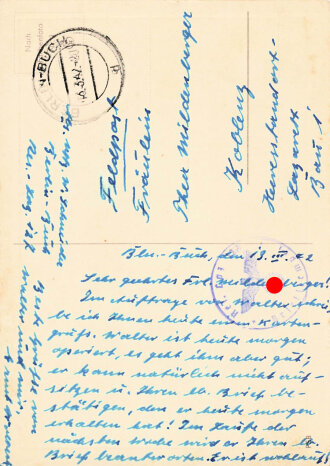 Feldpost
Fräulein
Thea Wildenberger
Koblenz
Heeresstandort-
Lazarett
Bau 1
BERLIN-BUCH
Bln.-Buch, den 13. III. 42
Sehr geehrtes Frl. Wildenberger!
Im Auftrage von Walter schrei-
be ich Ihnen heute einen Karten-
gruß. Walter ist heute morgen
operiert, es geht ihm aber gut;
er kann natürlich nicht auf-
sitzen u. Ihren lb. Brief be-
stätigen, den er heute morgen
erhalten hat! Im Laufe der
nächsten Woche wird er Ihren lb.
Brief beantworten. Er ist wohlauf!
Beste Grüße von